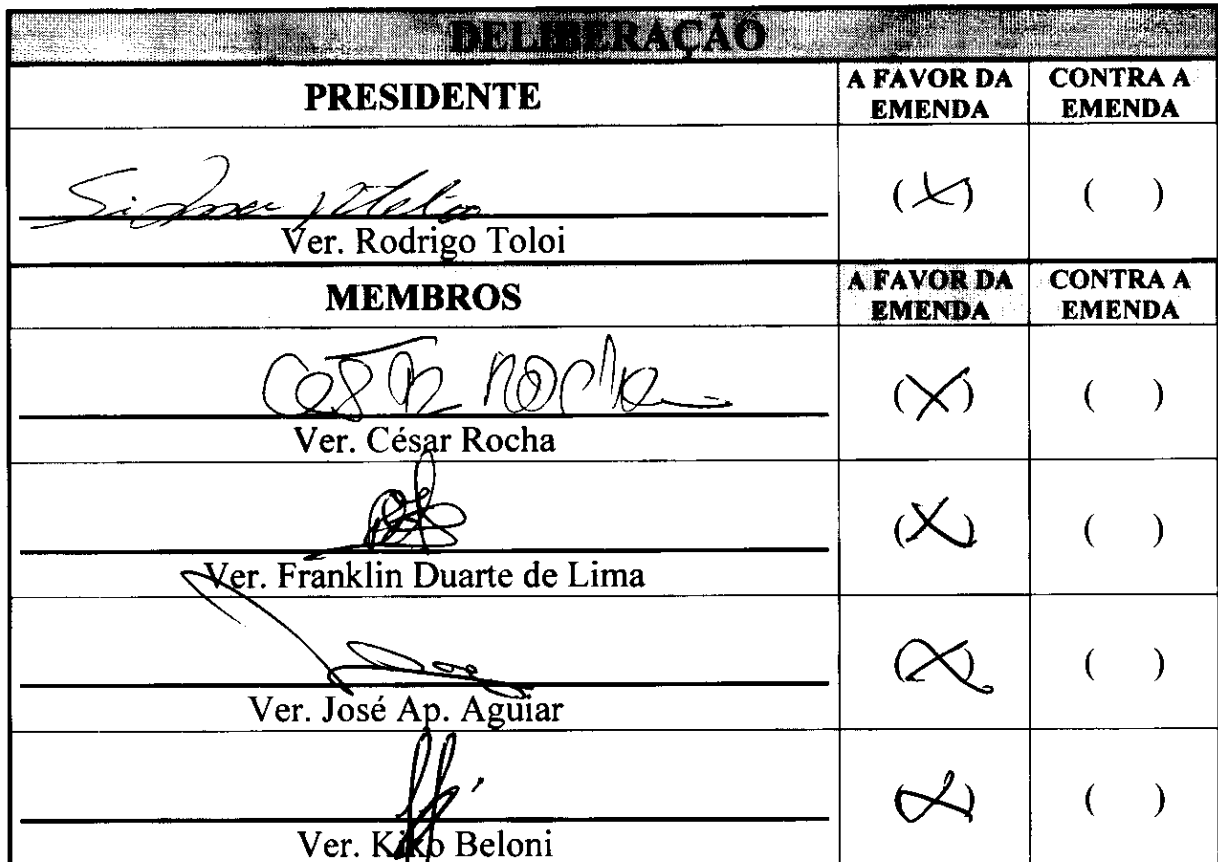 DELIBERAÇÃO
PRESIDENTE
A FAVOR DA EMENDA
CONTRA A EMENDA
(X)
( )
Ver. Rodrigo Toloi
MEMBROS
A FAVOR DA EMENDA
CONTRA A EMENDA
César Rocha
(X)
( )
Ver. César Rocha
(X)
( )
Ver. Franklin Duarte de Lima
(X)
( )
Ver. José Ap. Aguiar
(X)
( )
Ver. Kiko Beloni